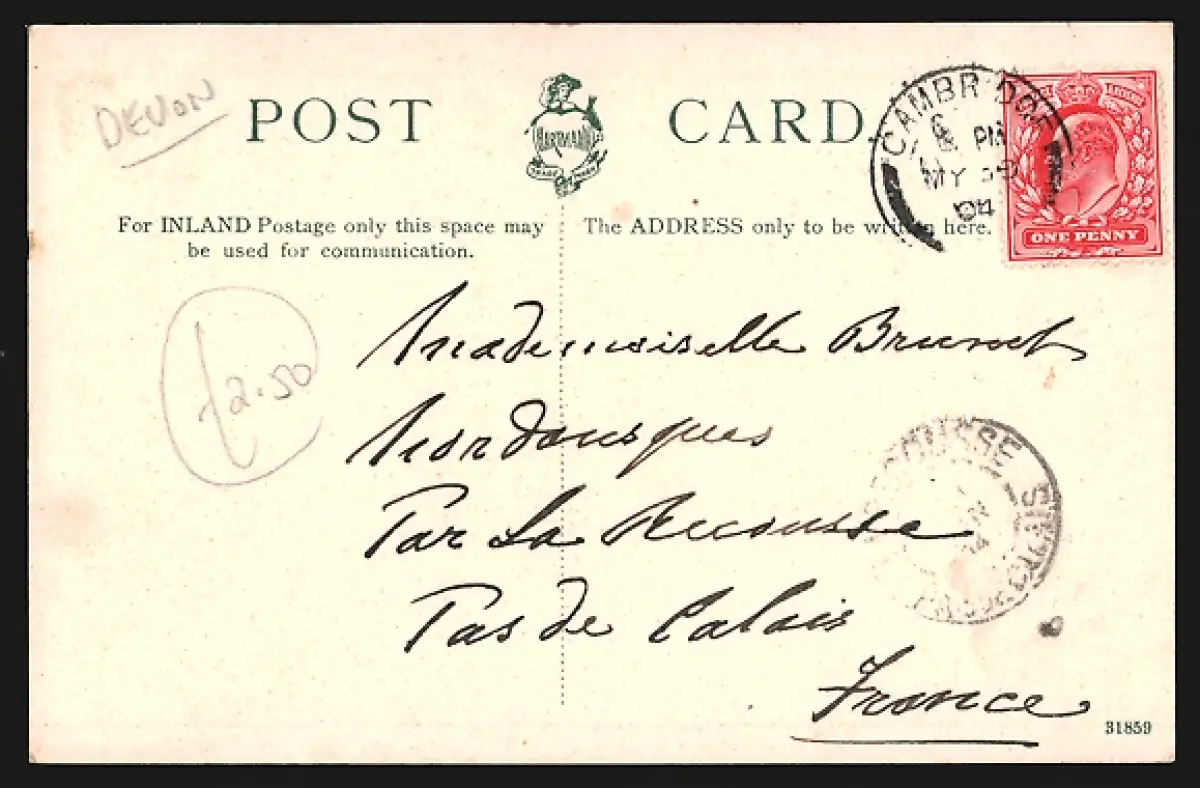 DEVON
POST CARD
HARTMANN
CAMBRIDGE
PM
MY 30
04
ONE PENNY
For INLAND Postage only this space may
be used for communication.
The ADDRESS only to be written here.
£2.50
Mademoiselle Brunet
Nordausques
Par La Recousse
Pas de Calais
France
RECOUSSE
PAS DE CALAIS
04
31859